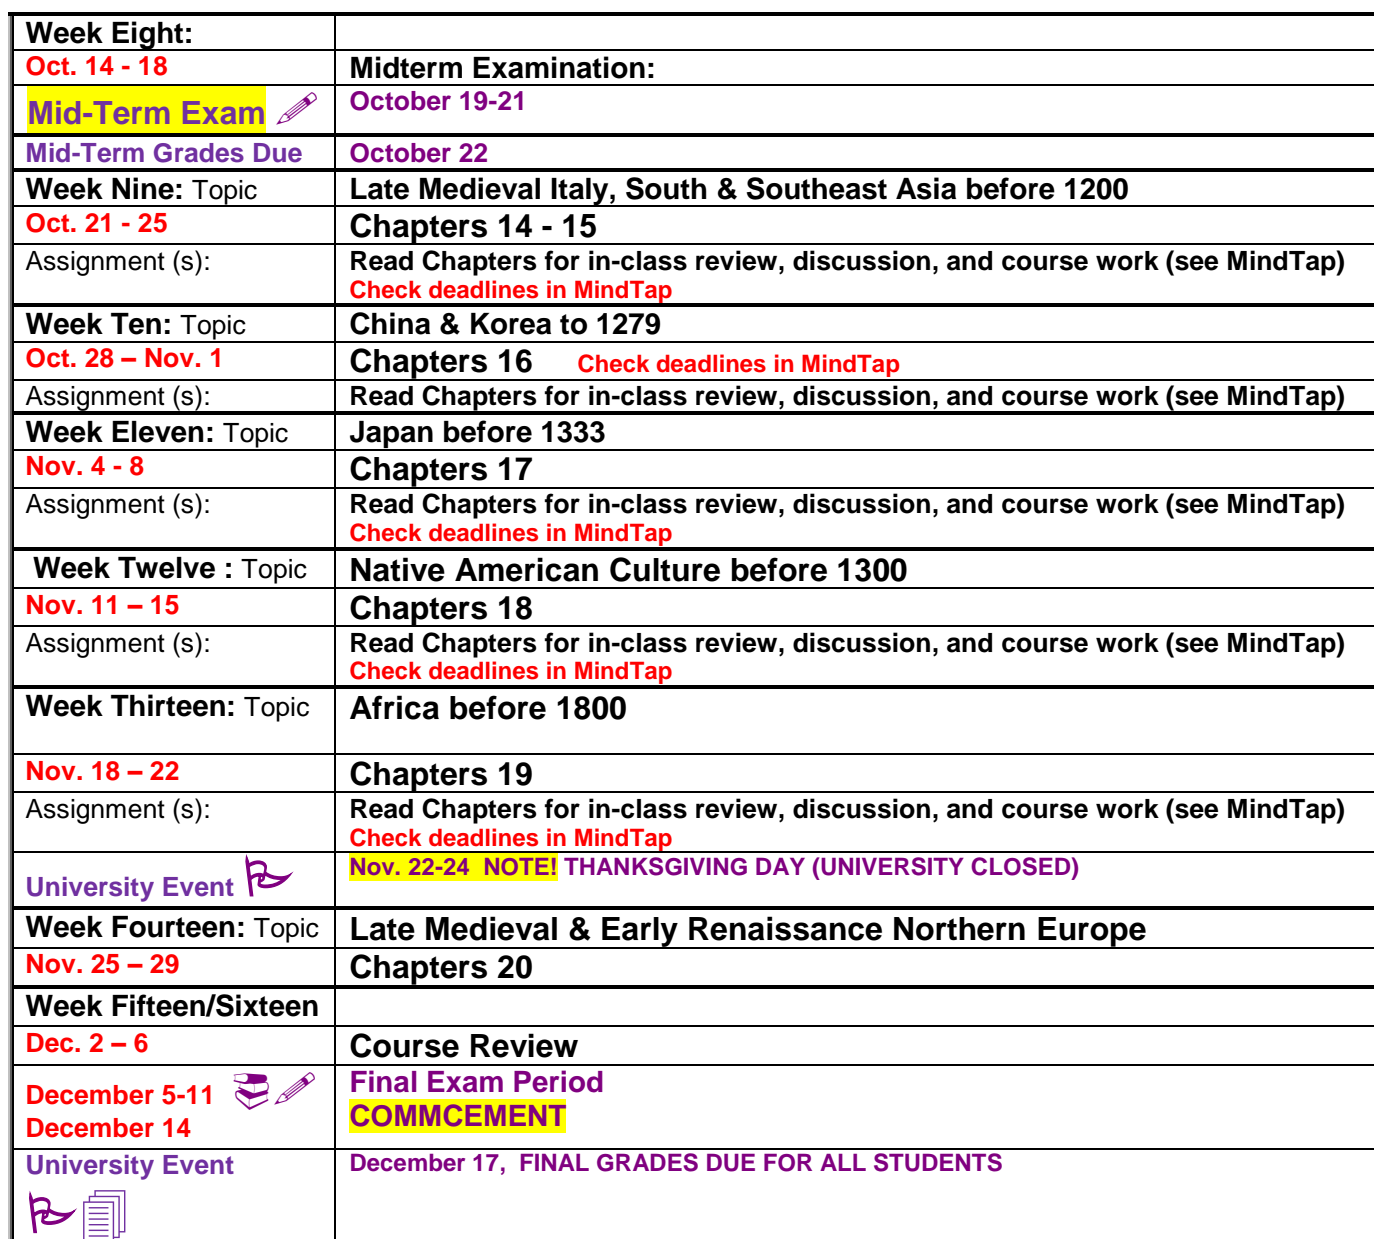 Week Eight:
Oct. 14 - 18 Midterm Examination:
Mid-Term Exam October 19-21
Mid-Term Grades Due October 22
Week Nine: Topic Late Medieval Italy, South & Southeast Asia before 1200
Oct. 21 - 25 Chapters 14 - 15
Assignment (s): Read Chapters for in-class review, discussion, and course work (see MindTap)
Check deadlines in MindTap
Week Ten: Topic China & Korea to 1279
Oct. 28 – Nov. 1 Chapters 16 Check deadlines in MindTap
Assignment (s): Read Chapters for in-class review, discussion, and course work (see MindTap)
Week Eleven: Topic Japan before 1333
Nov. 4 - 8 Chapters 17
Assignment (s): Read Chapters for in-class review, discussion, and course work (see MindTap)
Check deadlines in MindTap
Week Twelve : Topic Native American Culture before 1300
Nov. 11 – 15 Chapters 18
Assignment (s): Read Chapters for in-class review, discussion, and course work (see MindTap)
Check deadlines in MindTap
Week Thirteen: Topic Africa before 1800
Nov. 18 – 22 Chapters 19
Assignment (s): Read Chapters for in-class review, discussion, and course work (see MindTap)
Check deadlines in MindTap
University Event Nov. 22-24 NOTE! THANKSGIVING DAY (UNIVERSITY CLOSED)
Week Fourteen: Topic Late Medieval & Early Renaissance Northern Europe
Nov. 25 – 29 Chapters 20
Week Fifteen/Sixteen
Dec. 2 – 6 Course Review
December 5-11 Final Exam Period
December 14 COMMCEMENT
University Event December 17, FINAL GRADES DUE FOR ALL STUDENTS